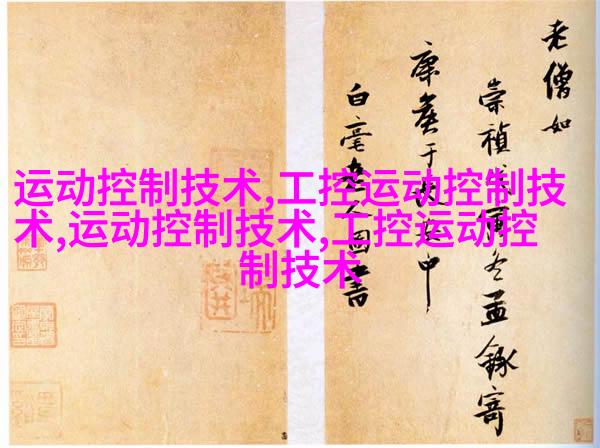 运动控制技术,工控运动控制技
术,运动控制技术,工控运动控
制技术
老僧如
崇禎冬孟錄寄
康于中
白毫人